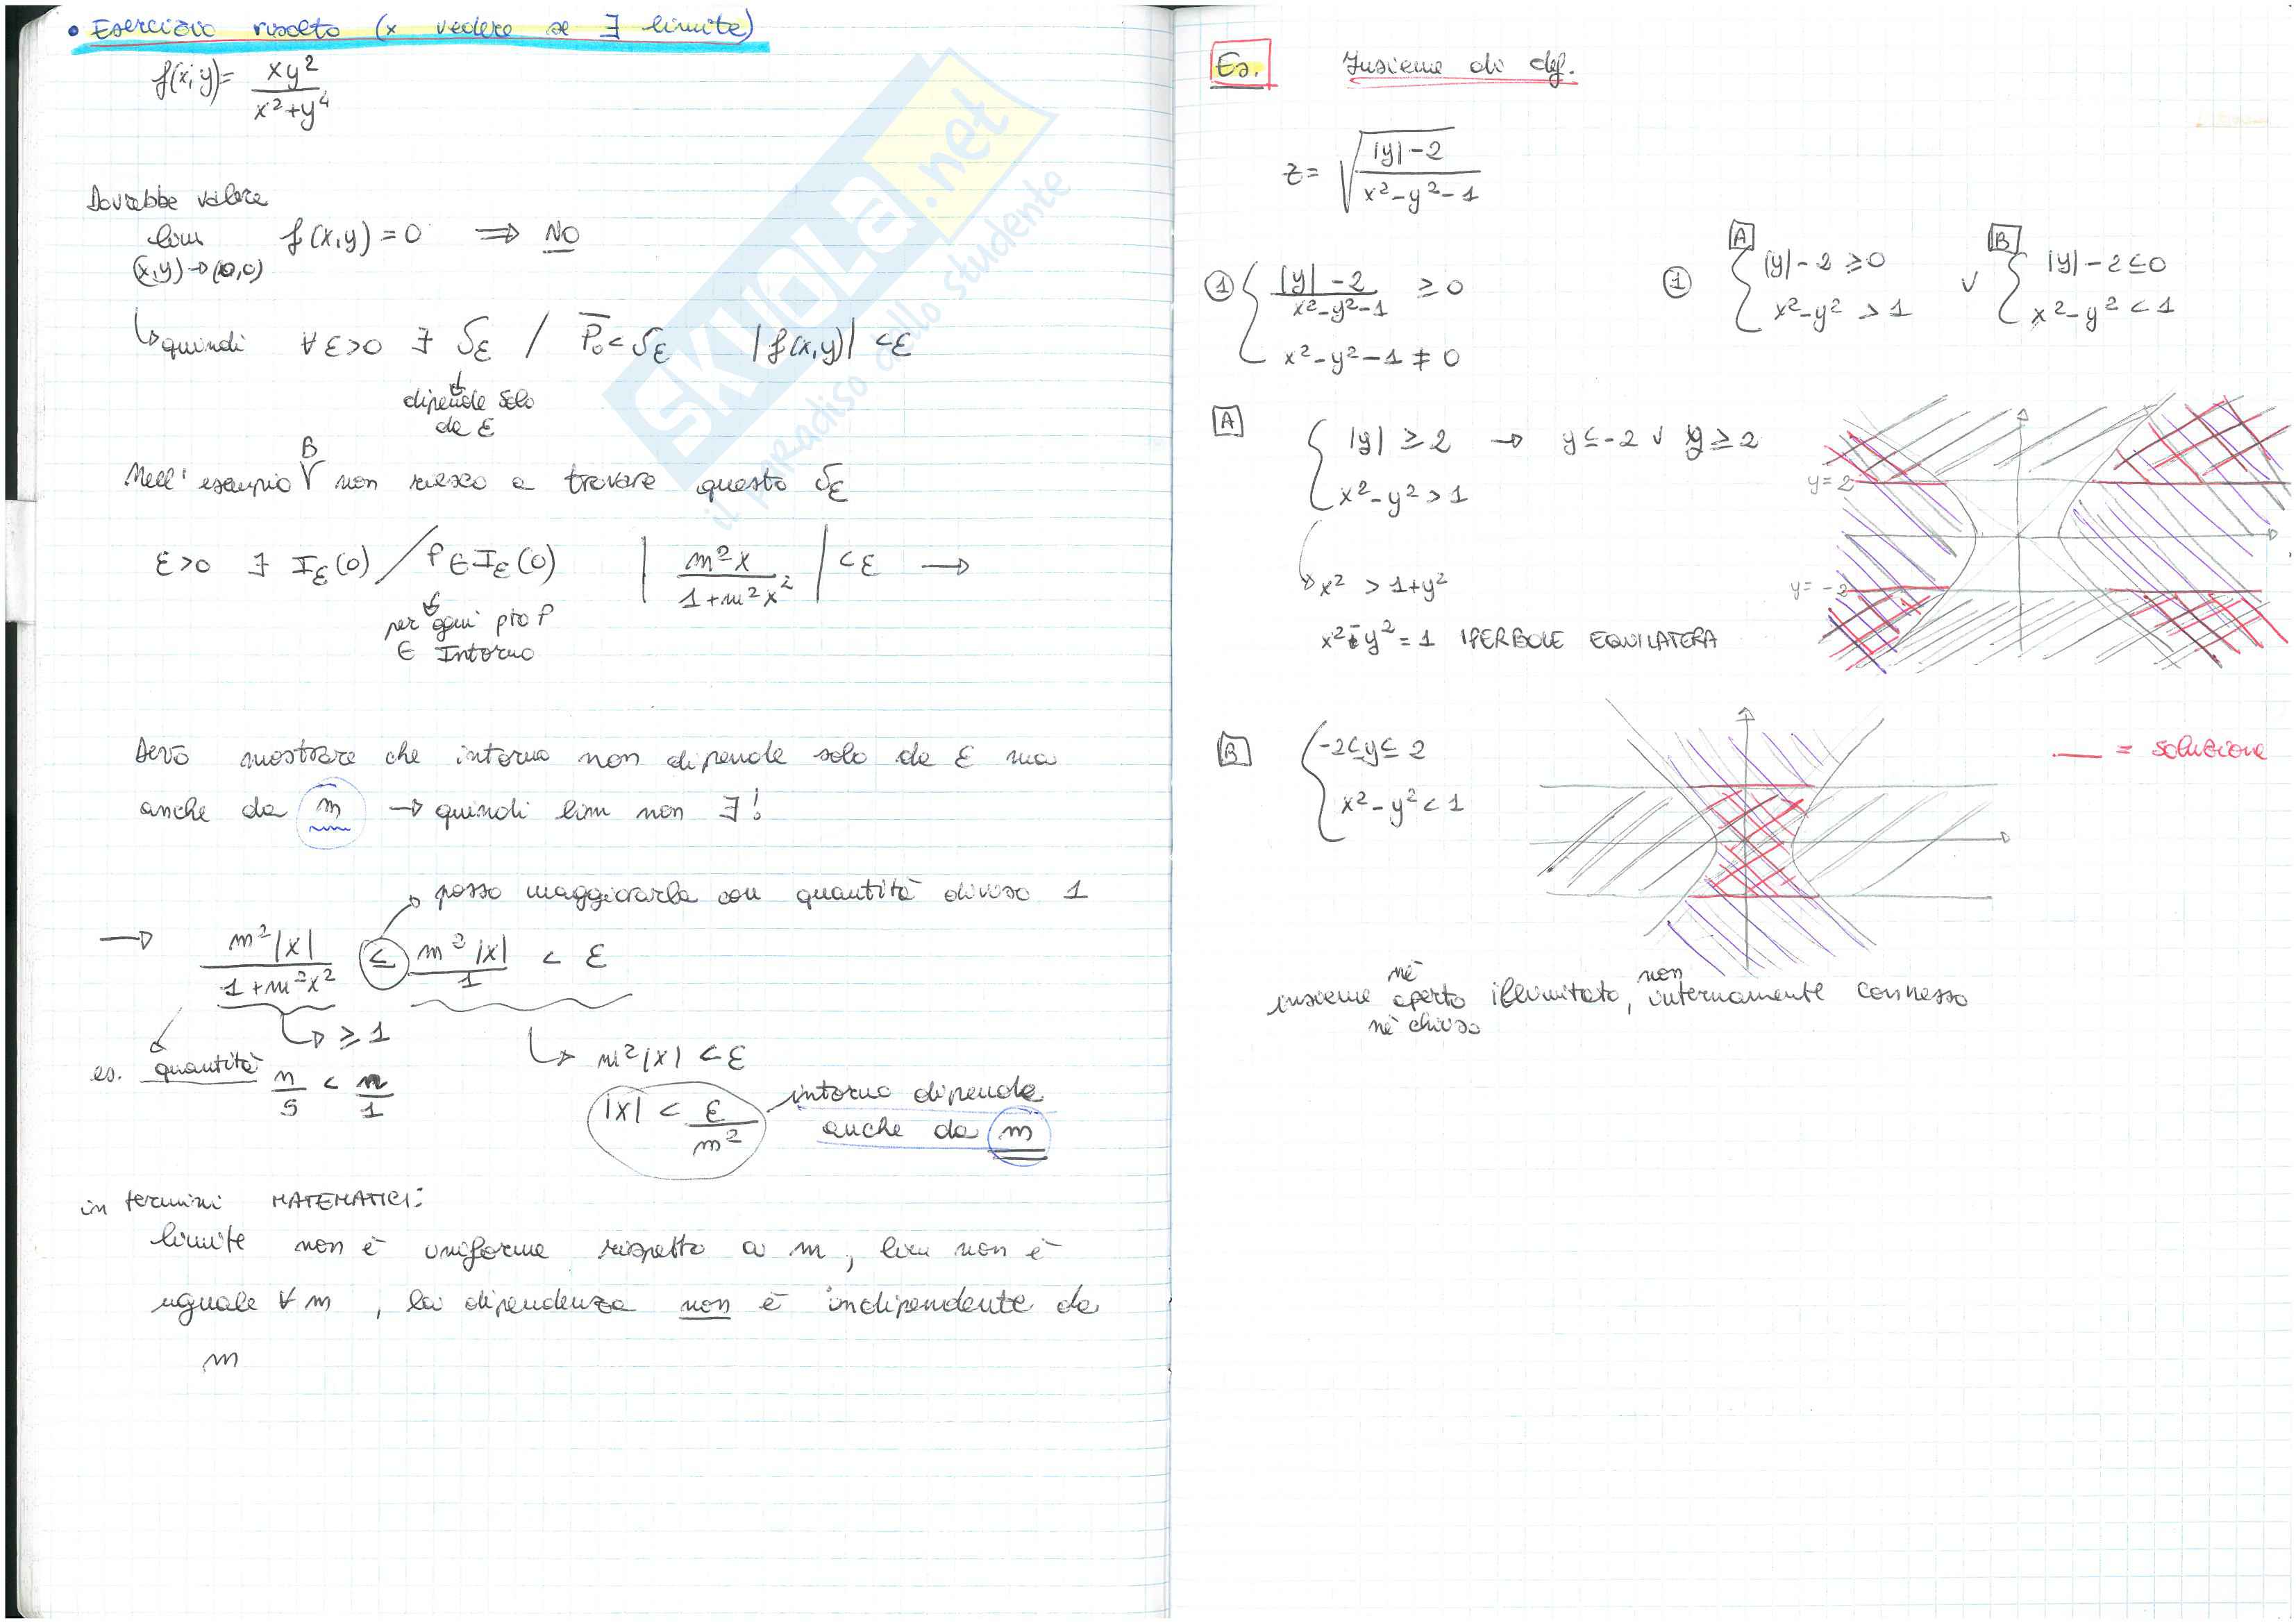 • Esercizio risolto (x vedere se ∃ limite)
f(x,y)= xy²/(x²+y⁴)
Dovrebbe valere
lim f(x,y)=0 ⟹ NO
(x,y)→(0,0)
↳quindi ∀ε>0 ∃ δε / P̅₀<δε |f(x,y)|<ε
dipende solo
da ε
Nell'esempio B non riesco a trovare questo δε
ε>0 ∃ Iε(0) / P∈Iε(0) | m²x/(1+m²x²) |<ε →
per ogni pto P
∈ Intorno
Devo mostrare che intorno non dipende solo da ε ma
anche da m → quindi lim non ∃!
posso maggiorarla con quantità diviso 1
→ m²|x|/(1+m²x²) ≤ m²|x|/1 < ε
→ ≥ 1
es. quantità n/5 < n/1
↳ m²|x| < ε
|x| < ε/m² intorno dipende
anche da m
in termini MATEMATICI:
limite non è uniforme rispetto a m, lim non è
uguale ∀ m, la dipendenza non è indipendente da
m
SKUOLA.net
il paradiso dello studente
Es. Insieme di def.
z= √((|y|-2)/(x²-y²-1))
① { (|y|-2)/(x²-y²-1) ≥0
x²-y²-1≠0
① A { |y|-2≥0 ∨ B { |y|-2≤0
x²-y²>1 x²-y²<1
A { |y|≥2 → y≤-2 ∨ y≥2
x²-y²>1
→ x² > 1+y²
x²-y²=1 IPERBOLE EQUILATERA
y=2
y=-2
B { -2≤y≤2
x²-y²<1
— = soluzione
insieme nè aperto nè chiuso illimitato, non internamente connesso